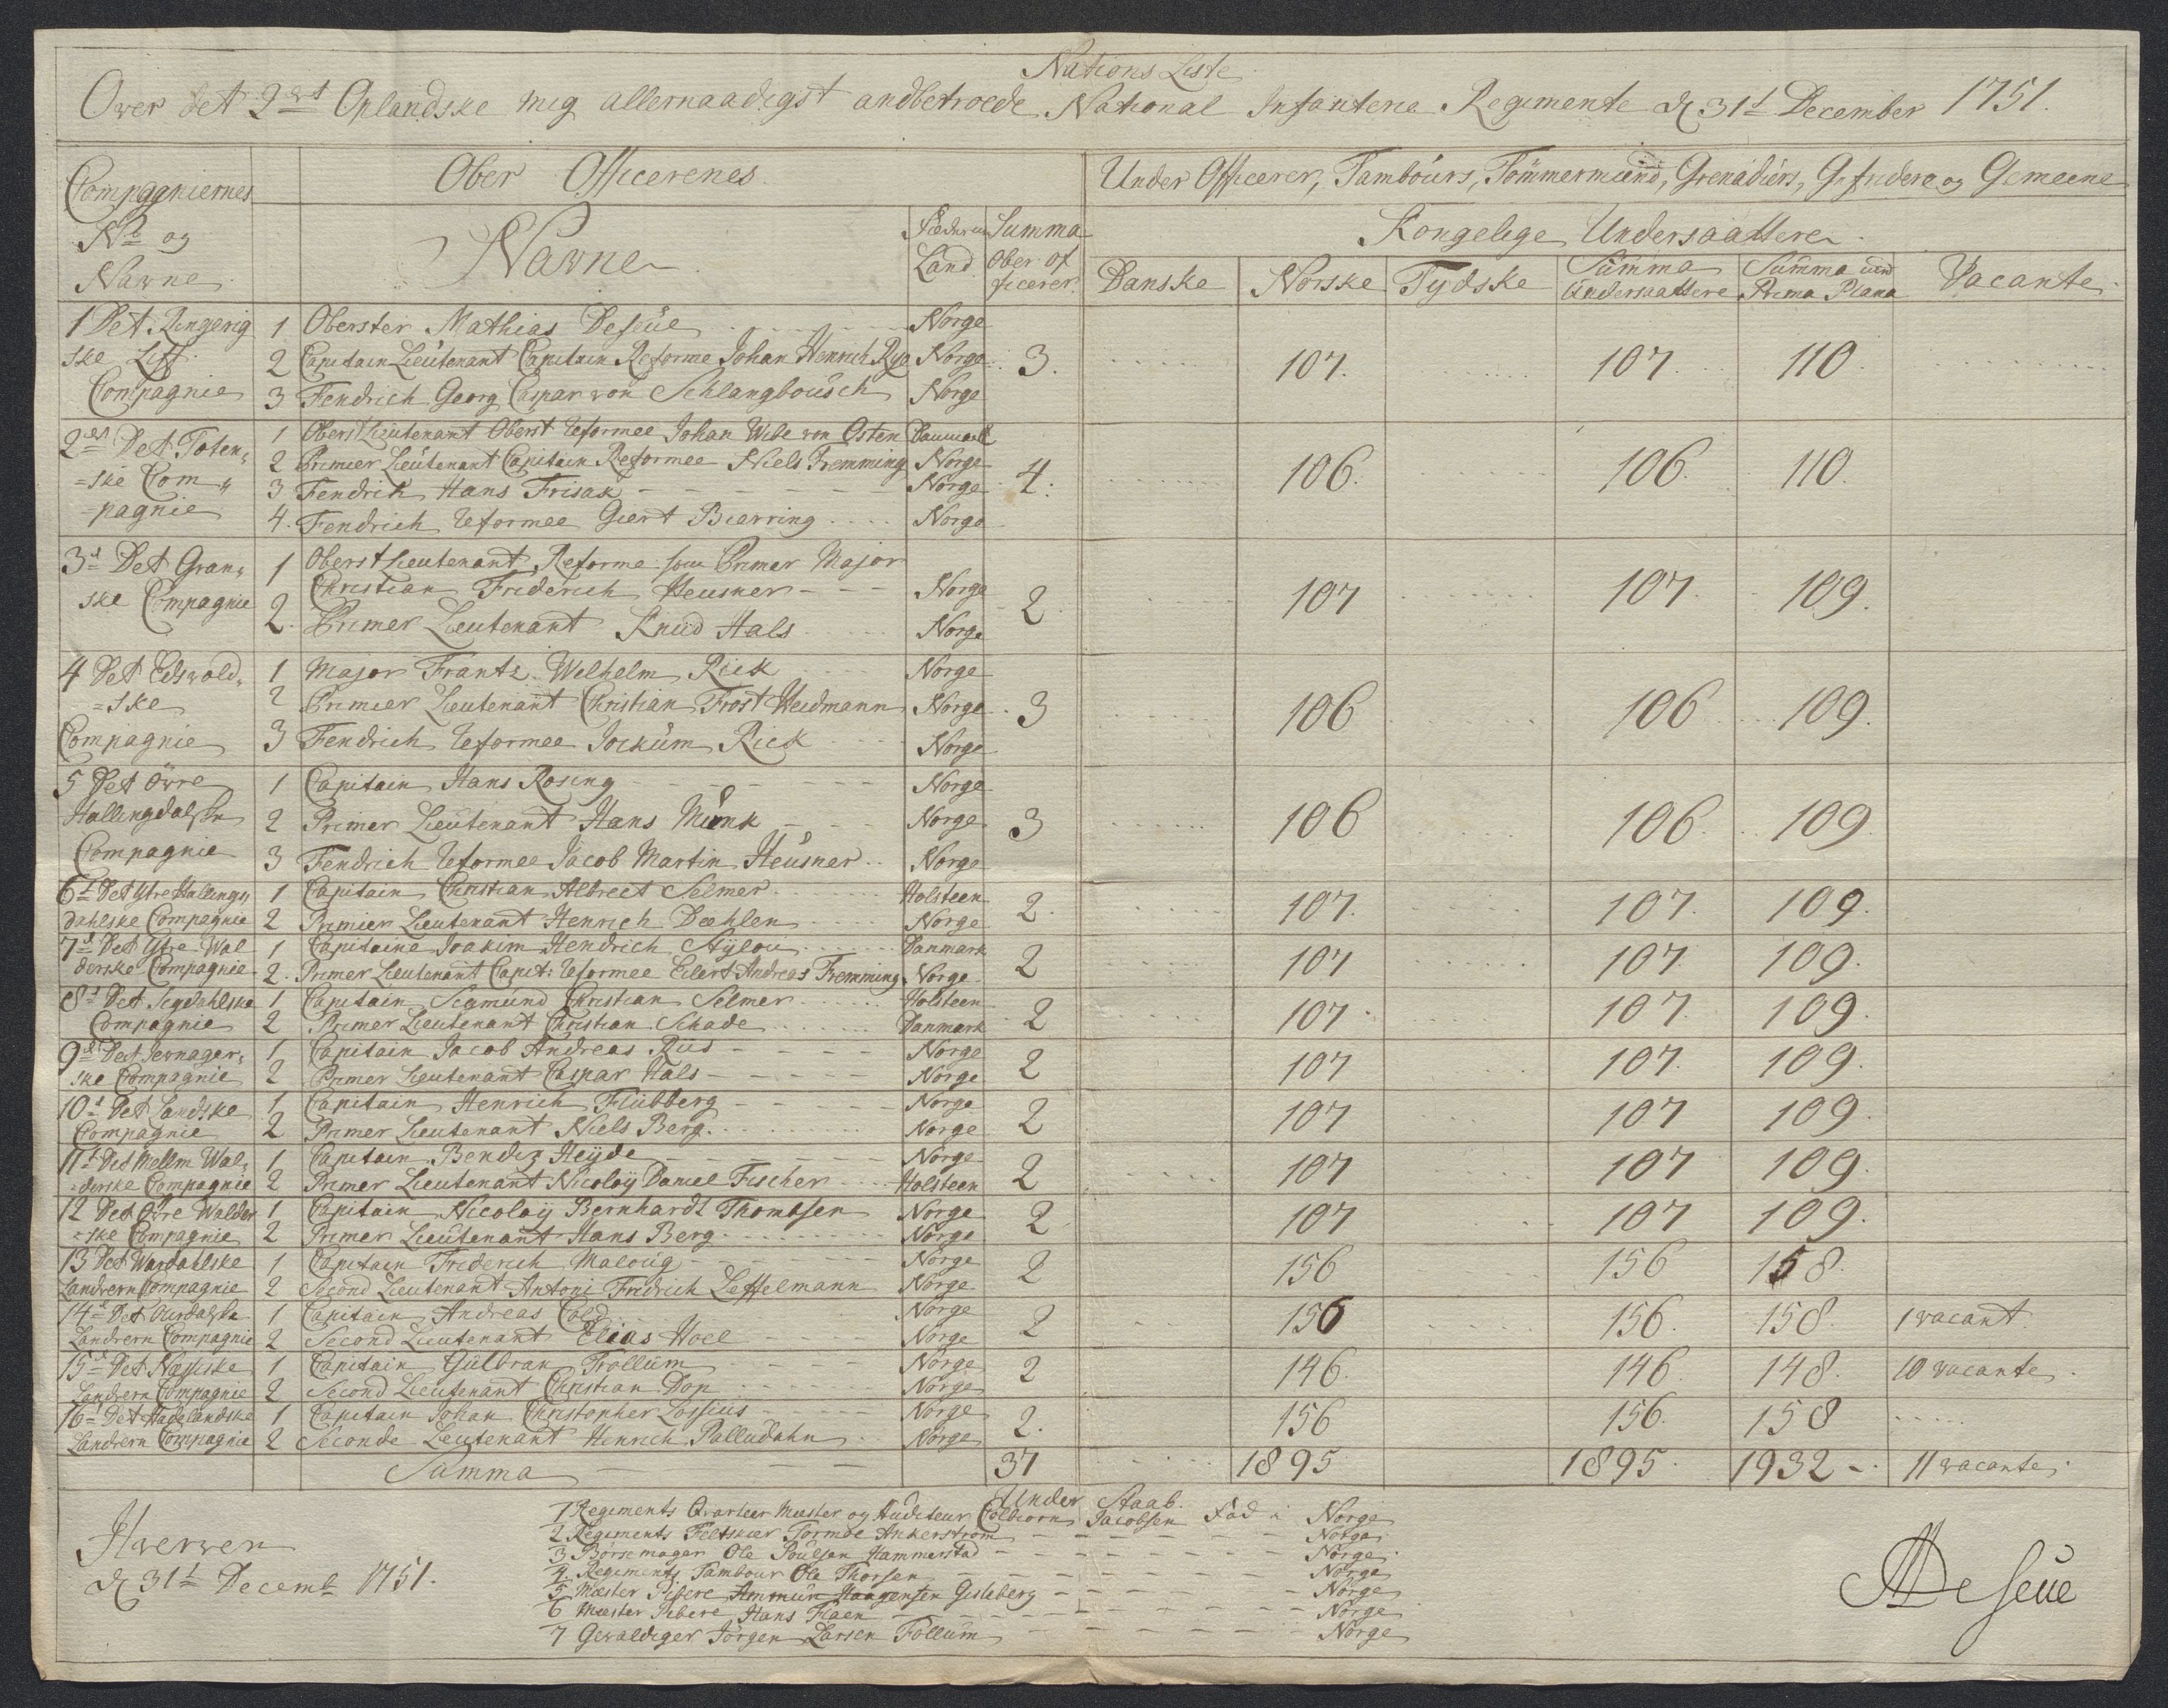 Nations Liste
Over det 2det Oplandske mig allernaadigst andbetroede National Infanterie Regimente d 31t December 1751.
Compagniernes No og Navne | Ober Officerenes | Under Officerer, Tambours, Tömmermænd, Grenadiers, Gefridere og Gemeene
Navne | Föderne Land | Summa Ober officerer | Kongelige Undersaattere
Danske | Norske | Tydske | Summa Undersaattere | Summa Prima Plana | Vacante
1 Det Ringerig | 1 Oberster Mathias Deseüe | Norge
ske Liff | 2 Capitain Lieütenant Capitain Reforme Johan Henrich Rye | Norge | 3. | 107. | 107. | 110
Compagnie | 3 Fendrich Georg Caspar von Schlangbousch | Norge
2det Det Toten | 1 Oberst Lieutenant Oberst Reformee Johan Wibe von Osten | Danmark
=ske Com | 2 Premier Lieutenant Capitain Reformee Niels Fremming | Norge | 4. | 106. | 106. | 110.
=pagnie | 3 Fendrich Hans Frisak | Norge
4. Fendrich Reformee Giert Bierring | Norge
3d Det Gran | 1 Oberst Lieutenant Reforme som Primer Major
ske Compagnie | Christian Friderich Heusner | Norge | 2 | 107 | 107. | 109.
2. Primer Lieutenant Knud Hals | Norge
4 Det Edsvold | 1 Major Frantz Wilhelm Rick | Norge
=ske | 2 Primier Lieutenant Christian Frost Weidmann | Norge | 3 | 106 | 106 | 109.
Compagnie | 3 Fendrich Reformee Jockum Rick | Norge
5 Det Övre | 1 Capitain Hans Rosing | Norge
Hallingdalske | 2 Primer Lieutenant Hans Munk | Norge | 3 | 106 | 106. | 109
Compagnie | 3 Fendrich Reformee Jacob Martin Heüsner | Norge
6t Det Ytre Hallings | 1 Capitain Christian Albrect Selmer | Holsteen | 2. | 107. | 107. | 109.
dahlske Compagnie | 2 Primier Lieutenant Henrich Dæhlen | Norge
7d Det Ytre Wal | 1 Capitaine Joakim Hendrich Stÿlou | Danmark | 2 | 107 | 107. | 109.
derske Compagnie | 2. Primer Lieutenant Capit: Reformee Eilert Andreas Fremming | Norge
8d Det Sigdahlske | 1 Capitain Segmund Christian Selmer | Holsteen | 2 | 107 | 107. | 109.
Compagnie | 2 Primer Lieutenant Christian Schade | Danmark
9d Det Jevnager | 1 Capitain Jacob Andreas Riis | Norge | 2 | 107 | 107. | 109.
ske Compagnie | 2 Primer Lieutenant Caspar Hals | Norge
10d Det Landske | 1 Capitain Henrich Flübberg | Norge | 2 | 107 | 107 | 109.
Compagnie | 2 Primer Lieutenant Niels Berg. | Norge
11t Det Mellm Wal | 1 Capitain Bendix Heÿde | Norge | 2 | 107 | 107 | 109.
=derske Compagnie | 2 Primer Lieutenant Nicolaÿ Daniel Fischer | Holsteen
12 Det Övre Walder | 1 Capitain Nicolaÿ Bernhardt Thombsen | Norge | 2 | 107 | 107 | 109.
=ske Compagnie | 2 Primer Lieütenant Hans Berg | Norge
13 Det Wardahlske | 1 Capitain Friderich Maloüg | Norge | 2 | 156 | 156 | 158.
Landvern Compagnie | 2 Second Lieutenant Antoni Fridrich Leffelmann | Norge
14d Det Aurdalske | 1 Capitain Andreas Cold | Norge | 2 | 156 | 156. | 158. | 1 vacant
Landvern Compagnie | 2 Second Lieutenant Elias Hoel | Norge
15d Det Næssiske | 1 Capitain Gulbran Trollüm | Norge | 2 | 146. | 146. | 148. | 10 vacante
Landvern Compagnie | 2 Second Lieutenant Christian Dop | Norge
16d Det Hadelandske | 1 Capitain Johan Christopher Lossius | Norge | 2. | 156 | 156. | 158
Landvern Compagnie | 2 Seconde Leutenant Henrich Palludahn | Norge
Summa | 37 | 1895 | 1895 | 1932 | 11 vacante
Under Staab.
1 Regiments Qvarteer Mester og Auditeur Colbiorn Jacobsen Fød i Norge
2 Regiments Feltskier Tormoe Ankerstrom Norge
3 Börsemager Ole Poülsen Hammerstad Norge
4 Regiments Tambour Ole Thorsen Norge
5 Mester Pibere Ammün Haagensen Gisleberg Norge
6 Mester Pibere Hans Flaen Norge
7 Gevaldiger Jörgen Larsen Follüm Norge
Hverven
d 31t Decemb 1751.
MDeseüe